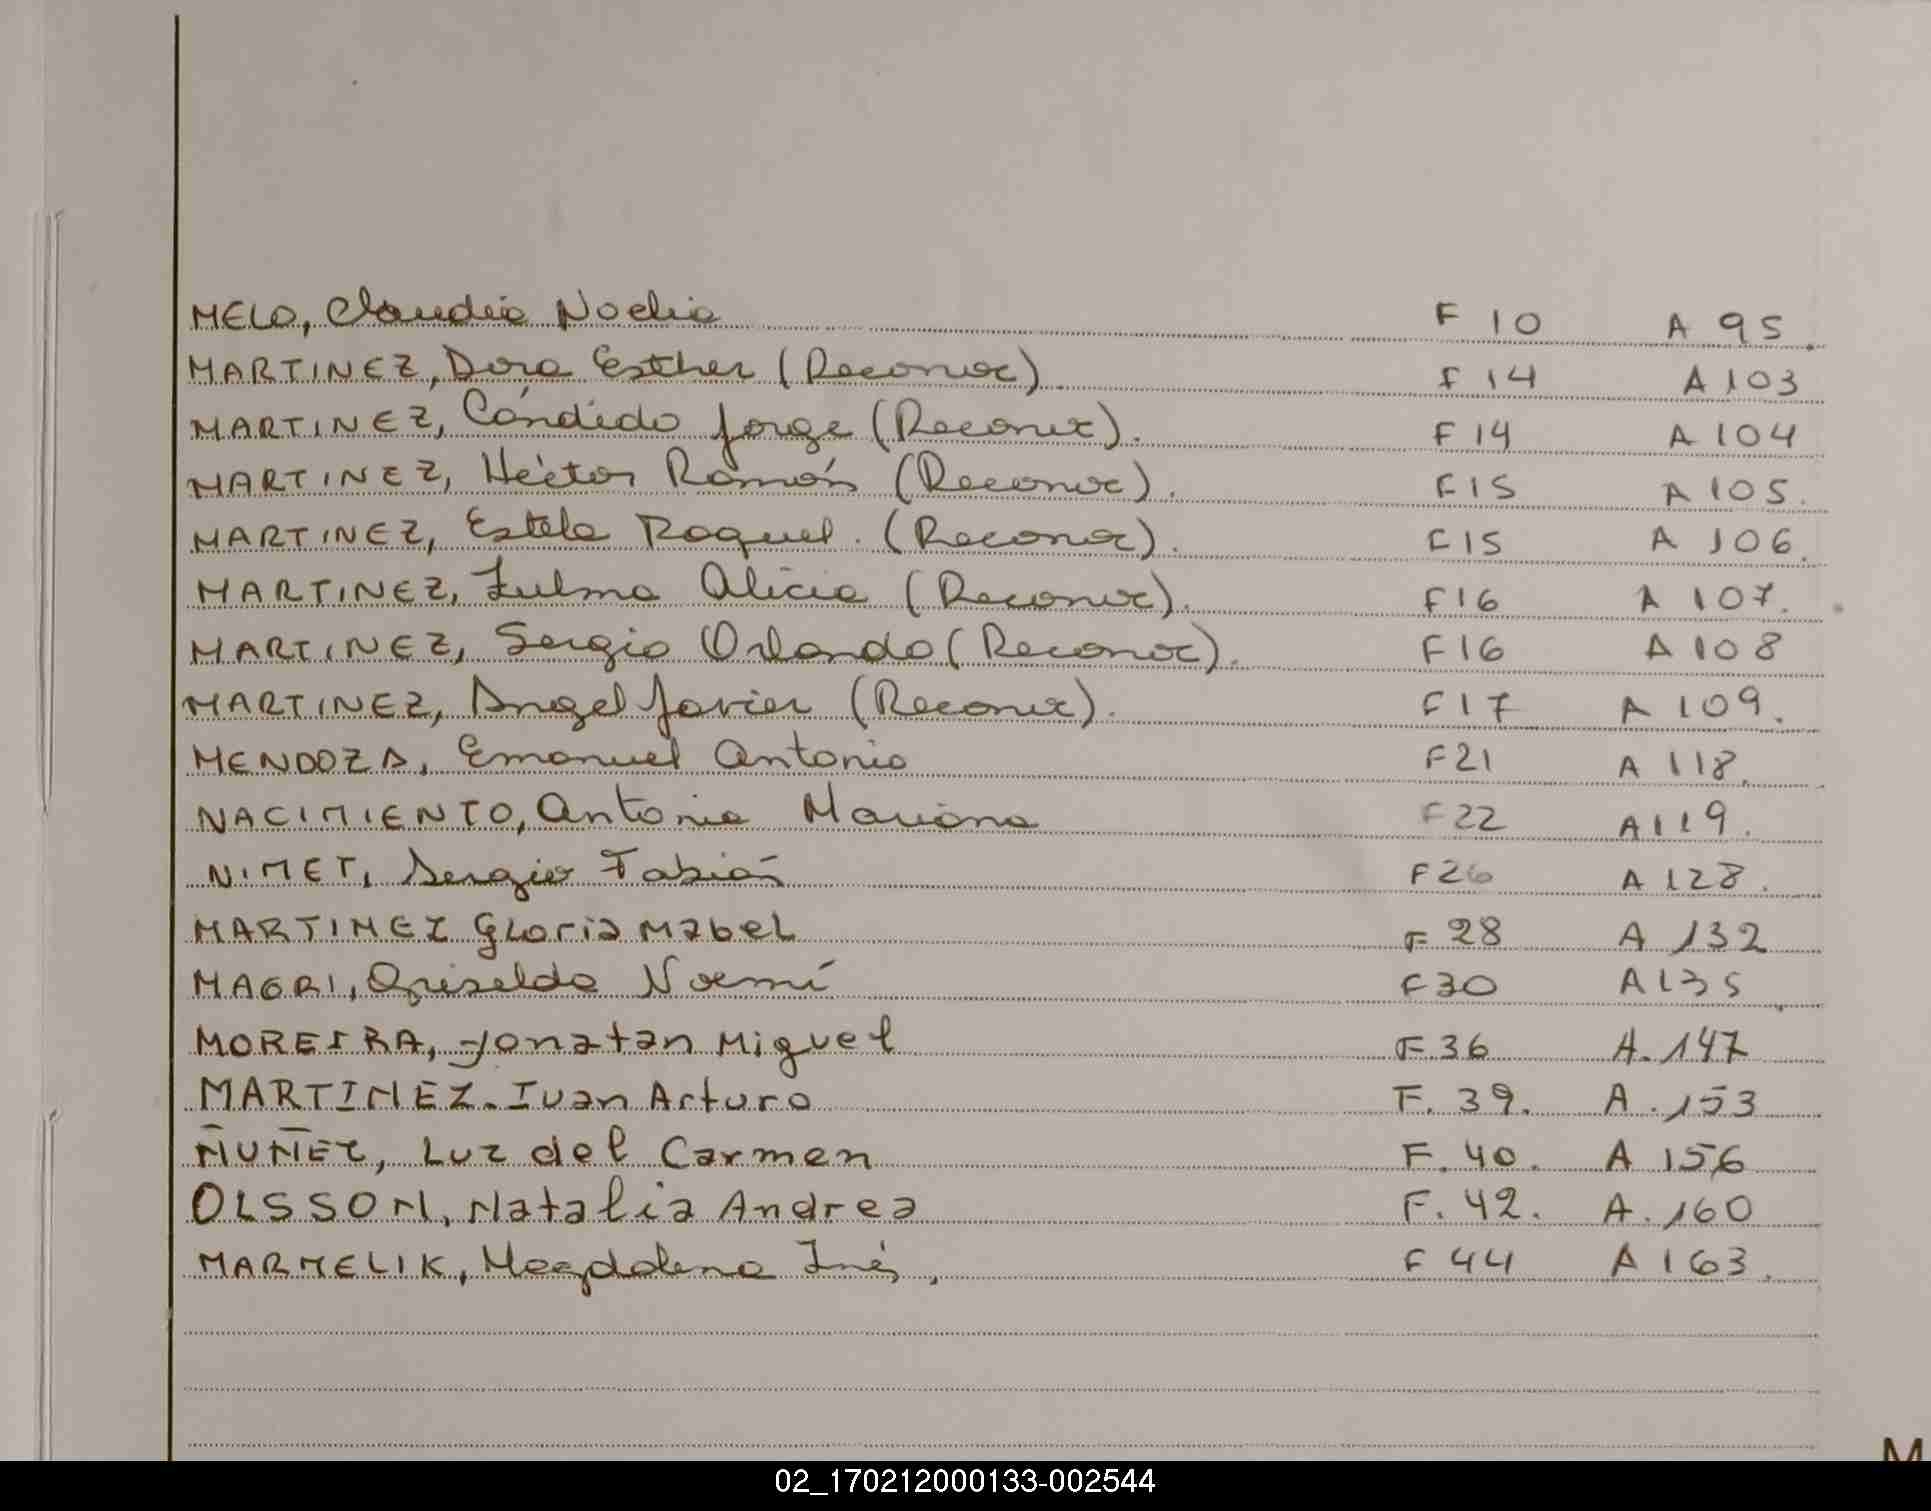 MELO, Claudia Noelia F 10 A 95.
MARTINEZ, Dora Esther (Reconoc). F 14 A 103
MARTINEZ, Cándido Jorge (Reconoc). F 14 A 104
MARTINEZ, Héctor Ramón (Reconoc). F 15 A 105.
MARTINEZ, Estela Raquel. (Reconoc). F 15 A 106.
MARTINEZ, Zulma Alicia (Reconoc). F 16 A 107.
MARTINEZ, Sergio Orlando (Reconoc). F 16 A 108
MARTINEZ, Angel Javier (Reconoc). F 17 A 109.
MENDOZA, Emanuel Antonio F 21 A 118.
NACIMIENTO, Antonia Mariana F 22 A 119.
NIMET, Sergio Fabián F 26 A 128.
MARTINEZ Gloria Mabel F 28 A 132
MAGRI, Griselda Noemí F 30 A 135
MOREIRA, Jonatan Miguel F.36 A.147
MARTINEZ. Ivan Arturo F. 39. A. 153
ÑUÑEZ, Luz del Carmen F. 40. A 156
OLSSON, Natalia Andrea F. 42. A. 160
MARMELIK, Magdalena Inés, F 44 A 163.
M
02_170212000133-002544